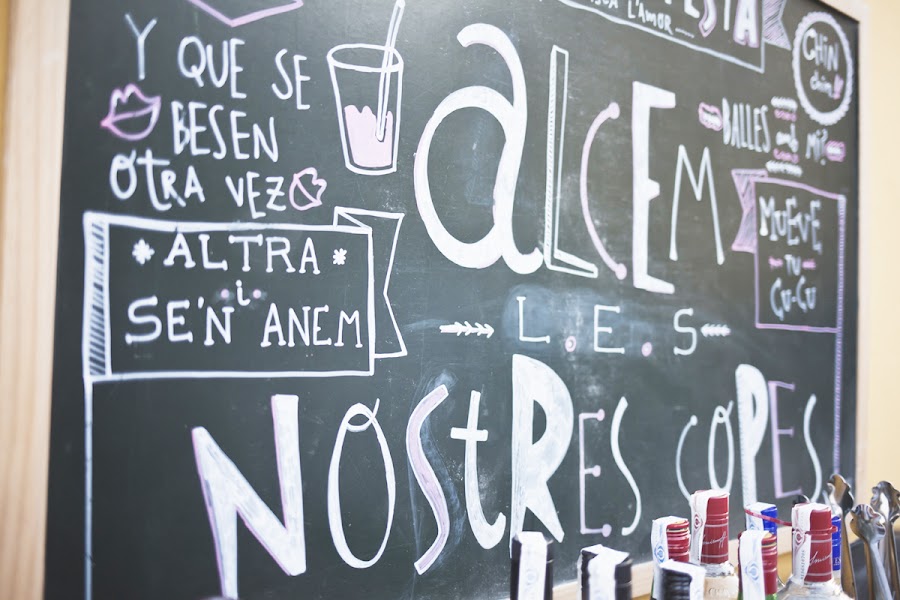 Y QUE SE
BESEN
OtRA VEZ
* ALTRA *
i
SE'N ANEM
L'AMOR......
ALCEM
L.E.S
NOStRES COPES
CHIN
chin!!
BALLES amb Mi?
MUEVE
TU
CU-CU